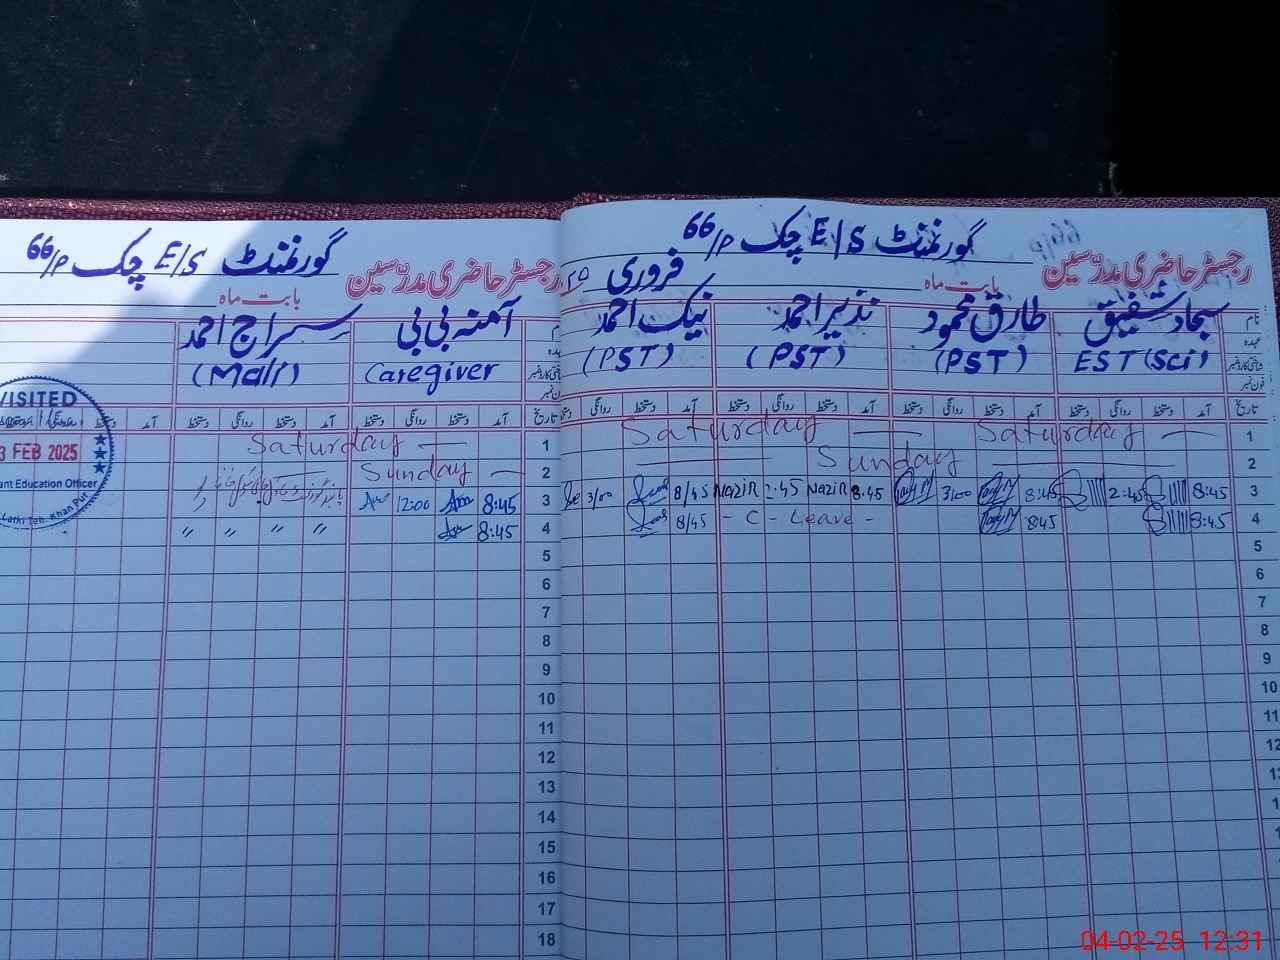 گورنمنٹ E/S چک 66/P
رجسٹر حاضری مدرسین
بابت ماہ فروری
نام سجاد شفیق طارق محمود نذیر احمد نیک احمد
عہدہ EST (Sci) (PST) (PST) (PST)
شناختی کارڈ نمبر
فون نمبر
تاریخ آمد دستخط روانگی دستخط آمد دستخط روانگی دستخط آمد دستخط روانگی دستخط آمد دستخط روانگی
1 Saturday Saturday
2 Sunday
3 8:45 2:45 8:45 3:00 8:45 Nazir 2:45 Nazir 8/45 3/00
4 8:45 8:45 - C - Leave - 8/45
5
6
7
8
9
10
11
12
گورنمنٹ E/S چک 66/P
رجسٹر حاضری مدرسین
بابت ماہ
آمنہ بی بی سراج احمد
Caregiver (Mali)
تاریخ آمد دستخط روانگی دستخط آمد دستخط روانگی دستخط آمد دستخط
1 Saturday
2 Sunday
3 8:45 12:00
4 8:45 " " " "
5
6
7
8
9
10
11
12
13
14
15
16
17
18
VISITED
3 FEB 2025
ant Education Officer
Latki Teh. Khan Pur
04-02-25 12:31